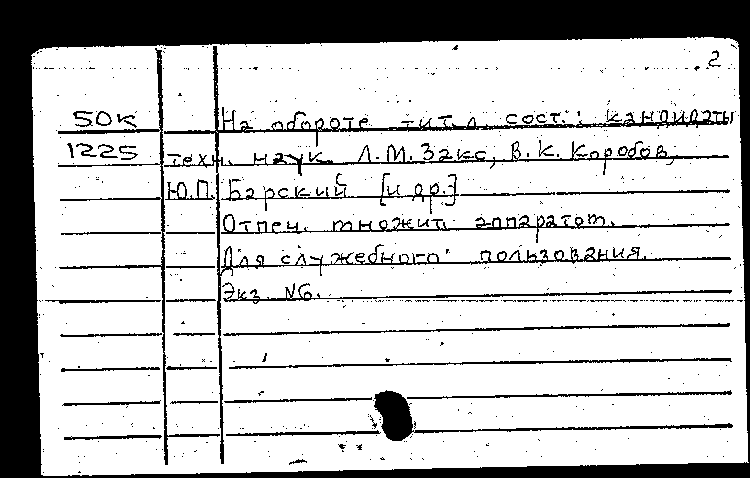 2
50К На обороте тит.л. сост.: кандидаты
1225 техн. наук Л.М.Закс, В.К.Коробов,
Ю.П. Барский [и др.]
Отпеч. множит. аппаратом.
Для служебного пользования.
Экз. №6.